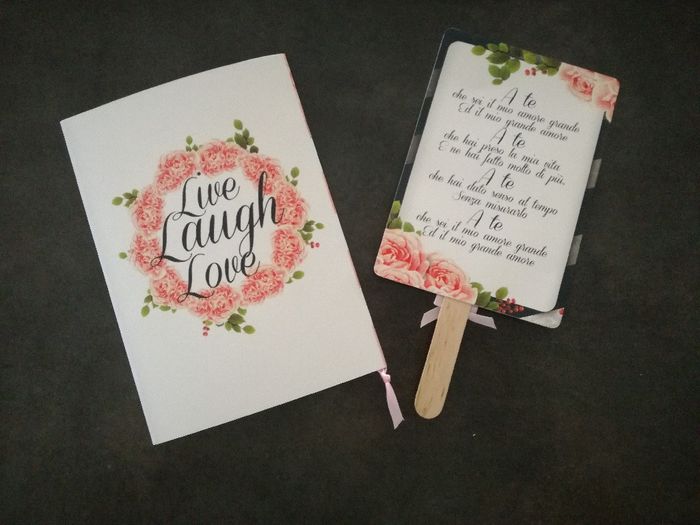 Live
Laugh
Love
A te
che sei il mio amore grande
Ed il mio grande amore
A te
che hai preso la mia vita
E ne hai fatto molto di più.
A te
che hai dato senso al tempo
Senza misurarlo
A te
che sei il mio amore grande
Ed il mio grande amore